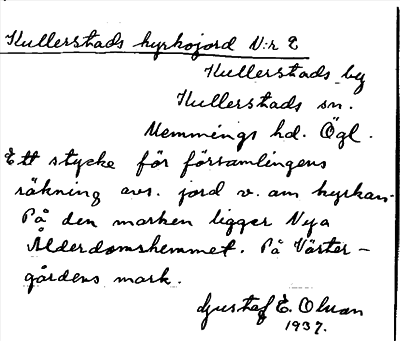 Kullerstads kyrkojord N:r 2
Kullerstads by
Kullerstads sn.
Memmings hd. Ögl.
Ett stycke för församlingens
räkning avs. jord v. om kyrkan.
På den marken ligger Nya
Ålderdomshemmet. På Väster-
gårdens mark.
Gustaf E. Olsson
1937.